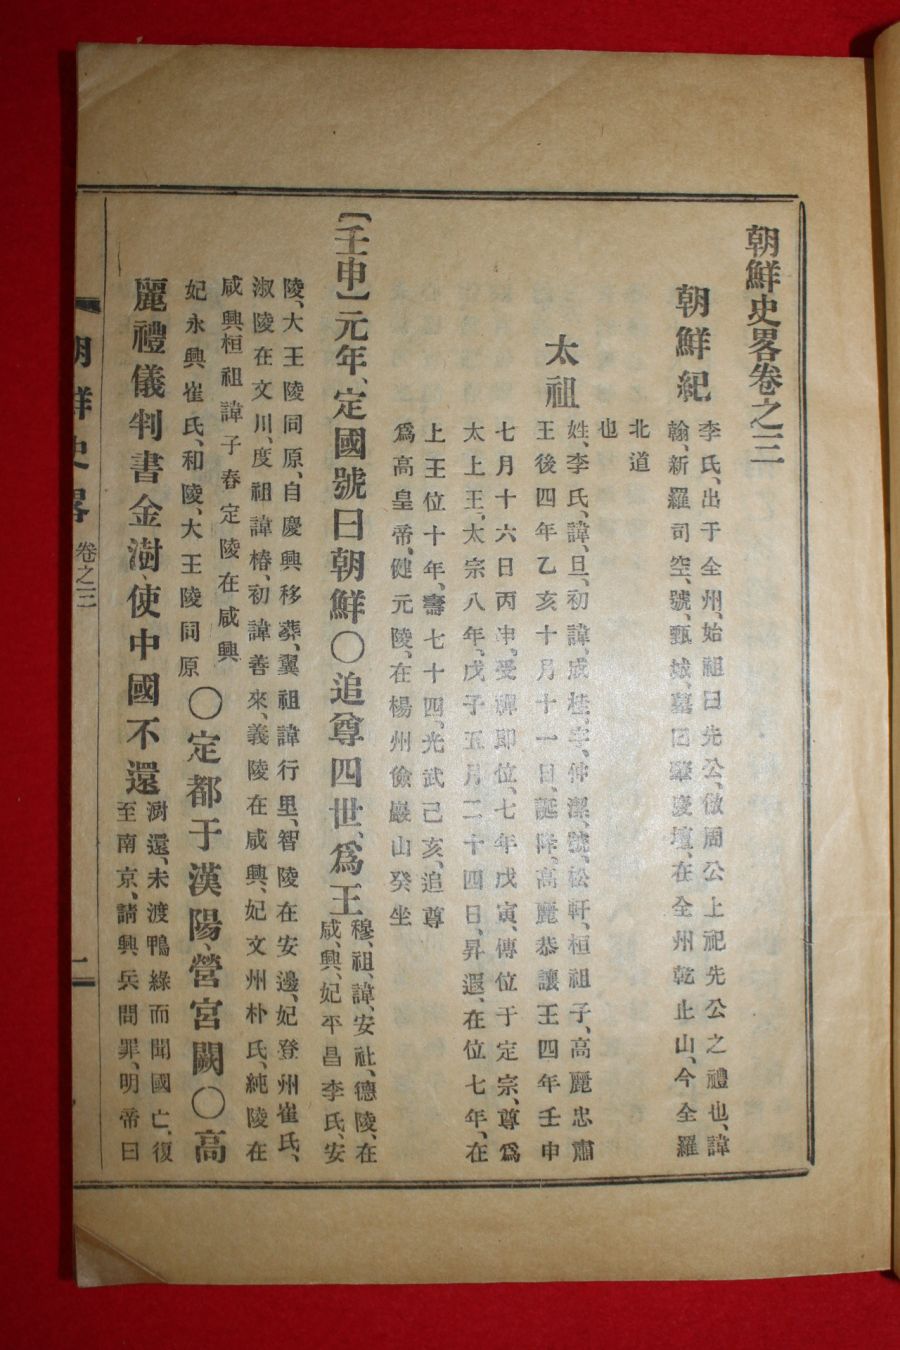 朝鮮史畧卷之三
朝鮮紀
李氏、出于全州、始祖曰先公、倣周公上祀先公之禮也、諱
翰、新羅司空、號、甄城、墓曰肇慶壇、在全州乾止山、今全羅
北道
也
太祖
姓、李氏、諱、旦、初諱、成桂、字、仲潔、號、松軒、桓祖子、高麗忠肅
王後四年乙亥十月十一日、誕降、高麗恭讓王四年壬申
七月十六日丙申、受禪即位、七年戊寅、傳位于定宗、尊爲
太上王、太宗八年、戊子五月二十四日、昇遐、在位七年、在
上王位十年、壽七十四、光武己亥、追尊
爲高皇帝、健元陵、在楊州儉巖山癸坐
【壬申】元年、定國號曰朝鮮〇追尊四世、爲王
穆、祖、諱、安社、德陵、在
咸、興、妃平昌李氏、安
陵、大王陵同原、自慶興移葬、翼祖諱行里、智陵在安邊、妃登州崔氏、
淑陵在文川、度祖諱椿、初諱善來、義陵在咸興、妃文州朴氏、純陵在
咸興桓祖諱子春定陵在咸興
妃永興崔氏、和陵、大王陵同原
〇定都于漢陽、營宮闕〇高
麗禮儀判書金澍、使中國不還
澍還、未渡鴨綠而聞國亡、復
至南京、請興兵問罪、明帝曰
朝鮮史畧 卷之三